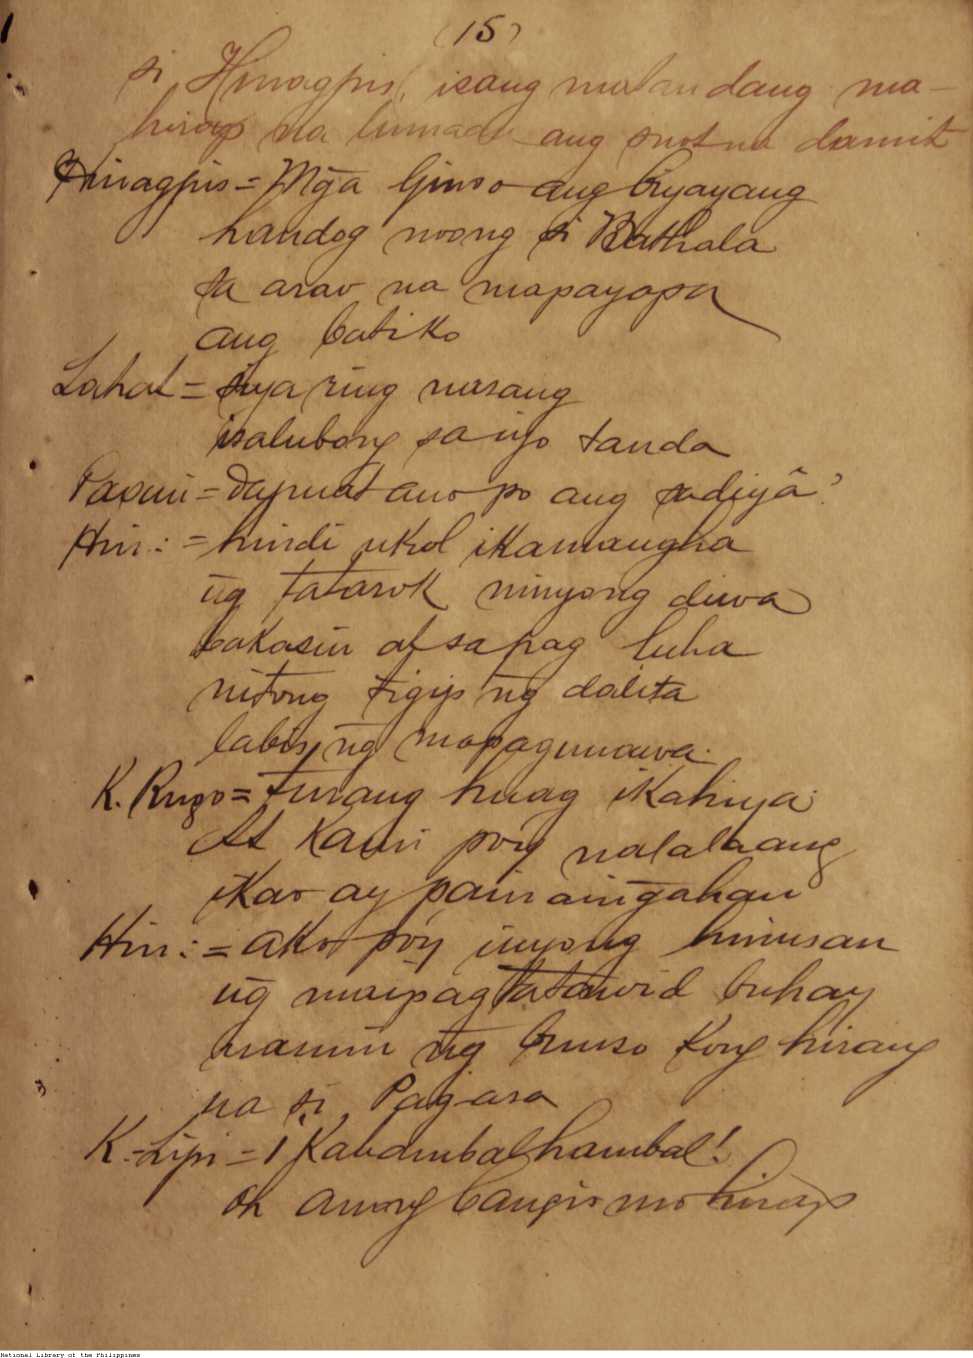 (15)
si Hinagpis, isang matandang ma-
hirap na luma ang suot na damit
Hinagpis = Mga Ginoo ang biyayang
handog noong si Bathala
sa arao na mapayapa
ang batiko
Lahat = siya ring nasang
isalubong sa iyo tanda
= Dapuat ano po ang sadiyâ?
Hin: = hindi ukol ikamangha
ng tatarok ninyong diwa
bakasin at sa pag luha
nitong tigip ng dalita
labis ng mapagunawa.
K. Rugo = Turang huag ikahiya
At kami po'y nalalaang
ikao ay painaingahan
Hin: = ako po'y inyong hinusan
ng maipagtatawid buhay
namin ng bunso kong hirang
na si Pag-asa
K.-Lipi = ¡Kahambalhambal!
Oh anong bangis mo hirap
National Library of the Philippines